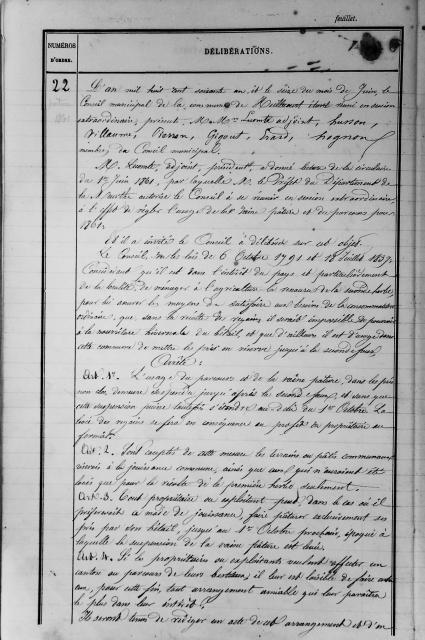 feuillet.
NUMÉROS
D'ORDRE.
DÉLIBÉRATIONS.
22
L'an mil huit cent soixante un, et le seize du mois de Juin, le
Conseil municipal de la commune de étant réuni en session
extraordinaire, présent, M. M.rs Lecomte adjoint, husson,
Villaume, Gigout,
membres du Conseil municipal.
M. Lecomte, adjoint, président, a donné lecture de la circulaire
du 1er Juin 1861, par laquelle M. le Préfet du Département de
la Meurthe autorise le Conseil à se réunir en session extraordinaire
à l'effet de régler l'usage de la vaine pâture et du parcours pour
1861.
Et il a invité le Conseil à délibérer sur cet objet.
Le Conseil, Vu les lois des 6 Octobre 1791 et 18 Juillet 1837,
Considérant qu'il est dans l'intérêt du pays et particulièrement
de la localité, de ménager à l'agriculture la ressource de la seconde herbe
pour lui assurer les moyens de satisfaire aux besoins de la consommation
ordinaire, que, sans la récolte des regains il serait impossible de pourvoir
à la nourriture hivernale du bétail, et que d'ailleurs il est d'usage dans
cette commune de mettre les prés en réserve jusqu'à la seconde faux,
Arrête:
Art. 1er. L'usage du parcours et de la vaine pâture, dans les prés
non clos, demeure suspendu jusqu'après la seconde faux, et sans que
cette suspension puisse toutefois s'étendre au delà du 1er Octobre. La
des regains se fera en conséquence au profit des propriétaires ou
fermiers.
Art. 2. Sont exceptés de cette mesure les terrains ou pâtis communaux
réservés à la jouissance commune, ainsi que ceux qui n'auraient été
loués que pour la récolte de la première herbe seulement.
Art. 3. Tout propriétaire ou exploitant peut, dans le cas où il
préférerait ce mode de jouissance, faire pâturer exclusivement ses
prés par son bétail, jusqu'au 1er Octobre prochain, époque à
laquelle la suspension de la vaine pâture est levée.
Art. 4. Si les propriétaires ou exploitants veulent affecter un
canton au parcours de leurs bestiaux, il leur est loisible de faire entre
eux, pour cette fin, tout arrangement amiable qui leur paraîtra
le plus dans leur intérêt.
Ils seront tenus de rédiger un acte de cet arrangement et d'en